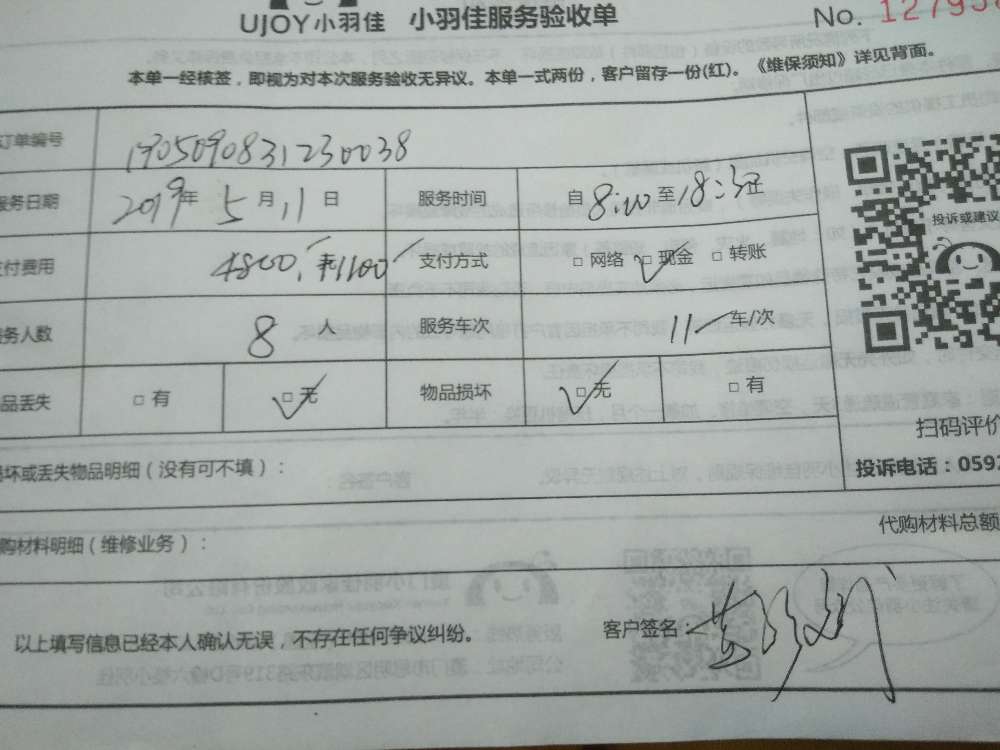 UJOY小羽佳 小羽佳服务验收单
No. 12795
本单一经核签，即视为对本次服务验收无异议。本单一式两份，客户留存一份(红)。《维保须知》详见背面。
订单编号 1905090831230038
服务日期 2019年 5月 11日 服务时间 自 8:00 至 18:30止
支付费用 4800. 1100 支付方式 □ 网络 □ 现金 □ 转账
服务人数 8 人 服务车次 11 车/次
品丢失 □ 有 □ 无 物品损坏 □ 无 □ 有
投诉或建议
扫码评价
投诉电话：0592
损坏或丢失物品明细（没有可不填）：
代购材料总额
购材料明细（维修业务）：
以上填写信息已经本人确认无误，不存在任何争议纠纷。
客户签名：